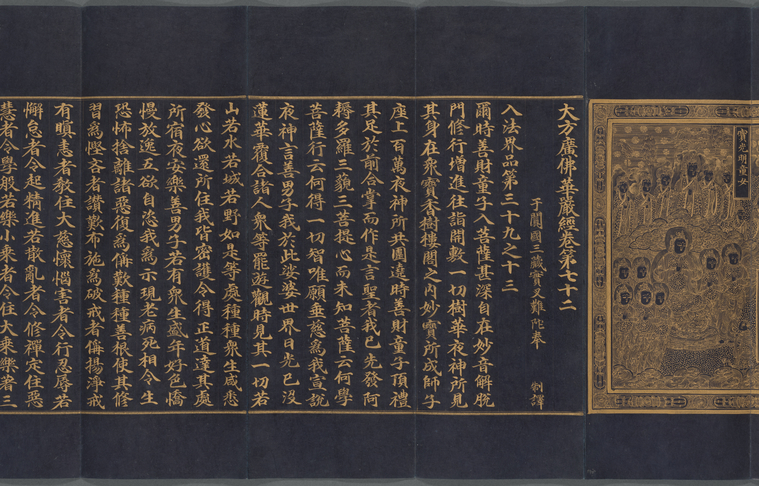 寶光明童女
大方廣佛華嚴經卷第七十二
于闐國三藏實叉難陀奉 制譯
入法界品第三十九之十三
爾時善財童子入菩薩甚深自在妙音解脫
門修行增進往詣開敷一切樹華夜神所見
其身在衆寶香樹樓閣之內妙寶所成師子
座上百萬夜神所共圍遶時善財童子頂禮
其足於前合掌而作是言聖者我已先發阿
耨多羅三藐三菩提心而未知菩薩云何學
菩薩行云何得一切智唯願垂慈爲我宣說
夜神言善男子我於此娑婆世界日光已沒
蓮華覆合諸人衆等罷遊觀時見其一切若
山若水若城若野如是等處種種衆生咸悉
發心欲還所住我皆密護令得正道達其處
所宿夜安樂善男子若有衆生盛年好色憍
慢放逸五欲自恣我爲示現老病死相令生
恐怖捨離諸惡復爲稱歎種種善根使其修
習爲慳吝者讚歎布施爲破戒者稱揚淨戒
有瞋恚者教住大慈懷惱害者令行忍辱若
懈怠者令起精進若散亂者令修禪定住惡
慧者令學般若樂小乘者令住大乘樂著三